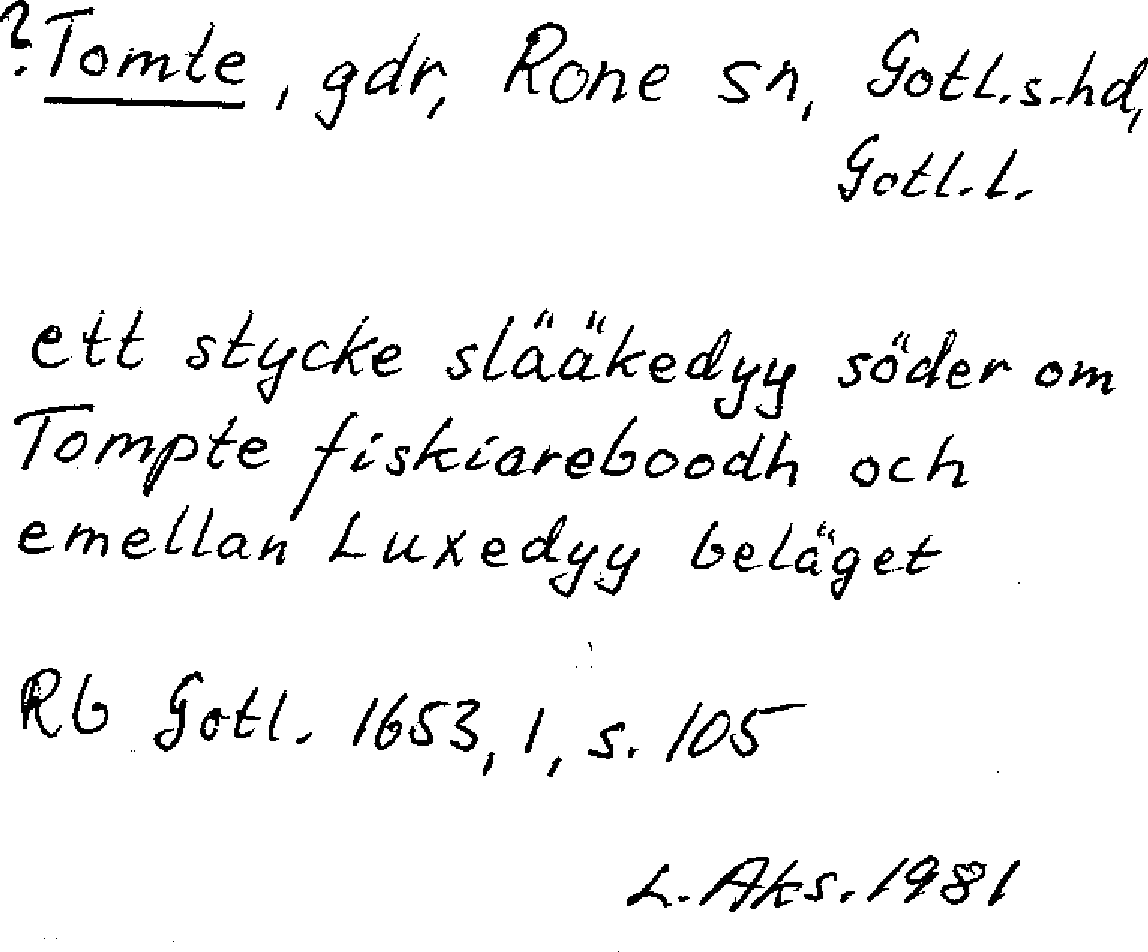 ?Tomte, gdr, Rone sn, Gotl.s.hd,
Gotl.L.
ett stycke slääkedyy söder om
Tompte fiskiareboodh och
emellan Luxedyy beläget
Rb Gotl. 1653, 1, s. 105
L. Aks. 1981